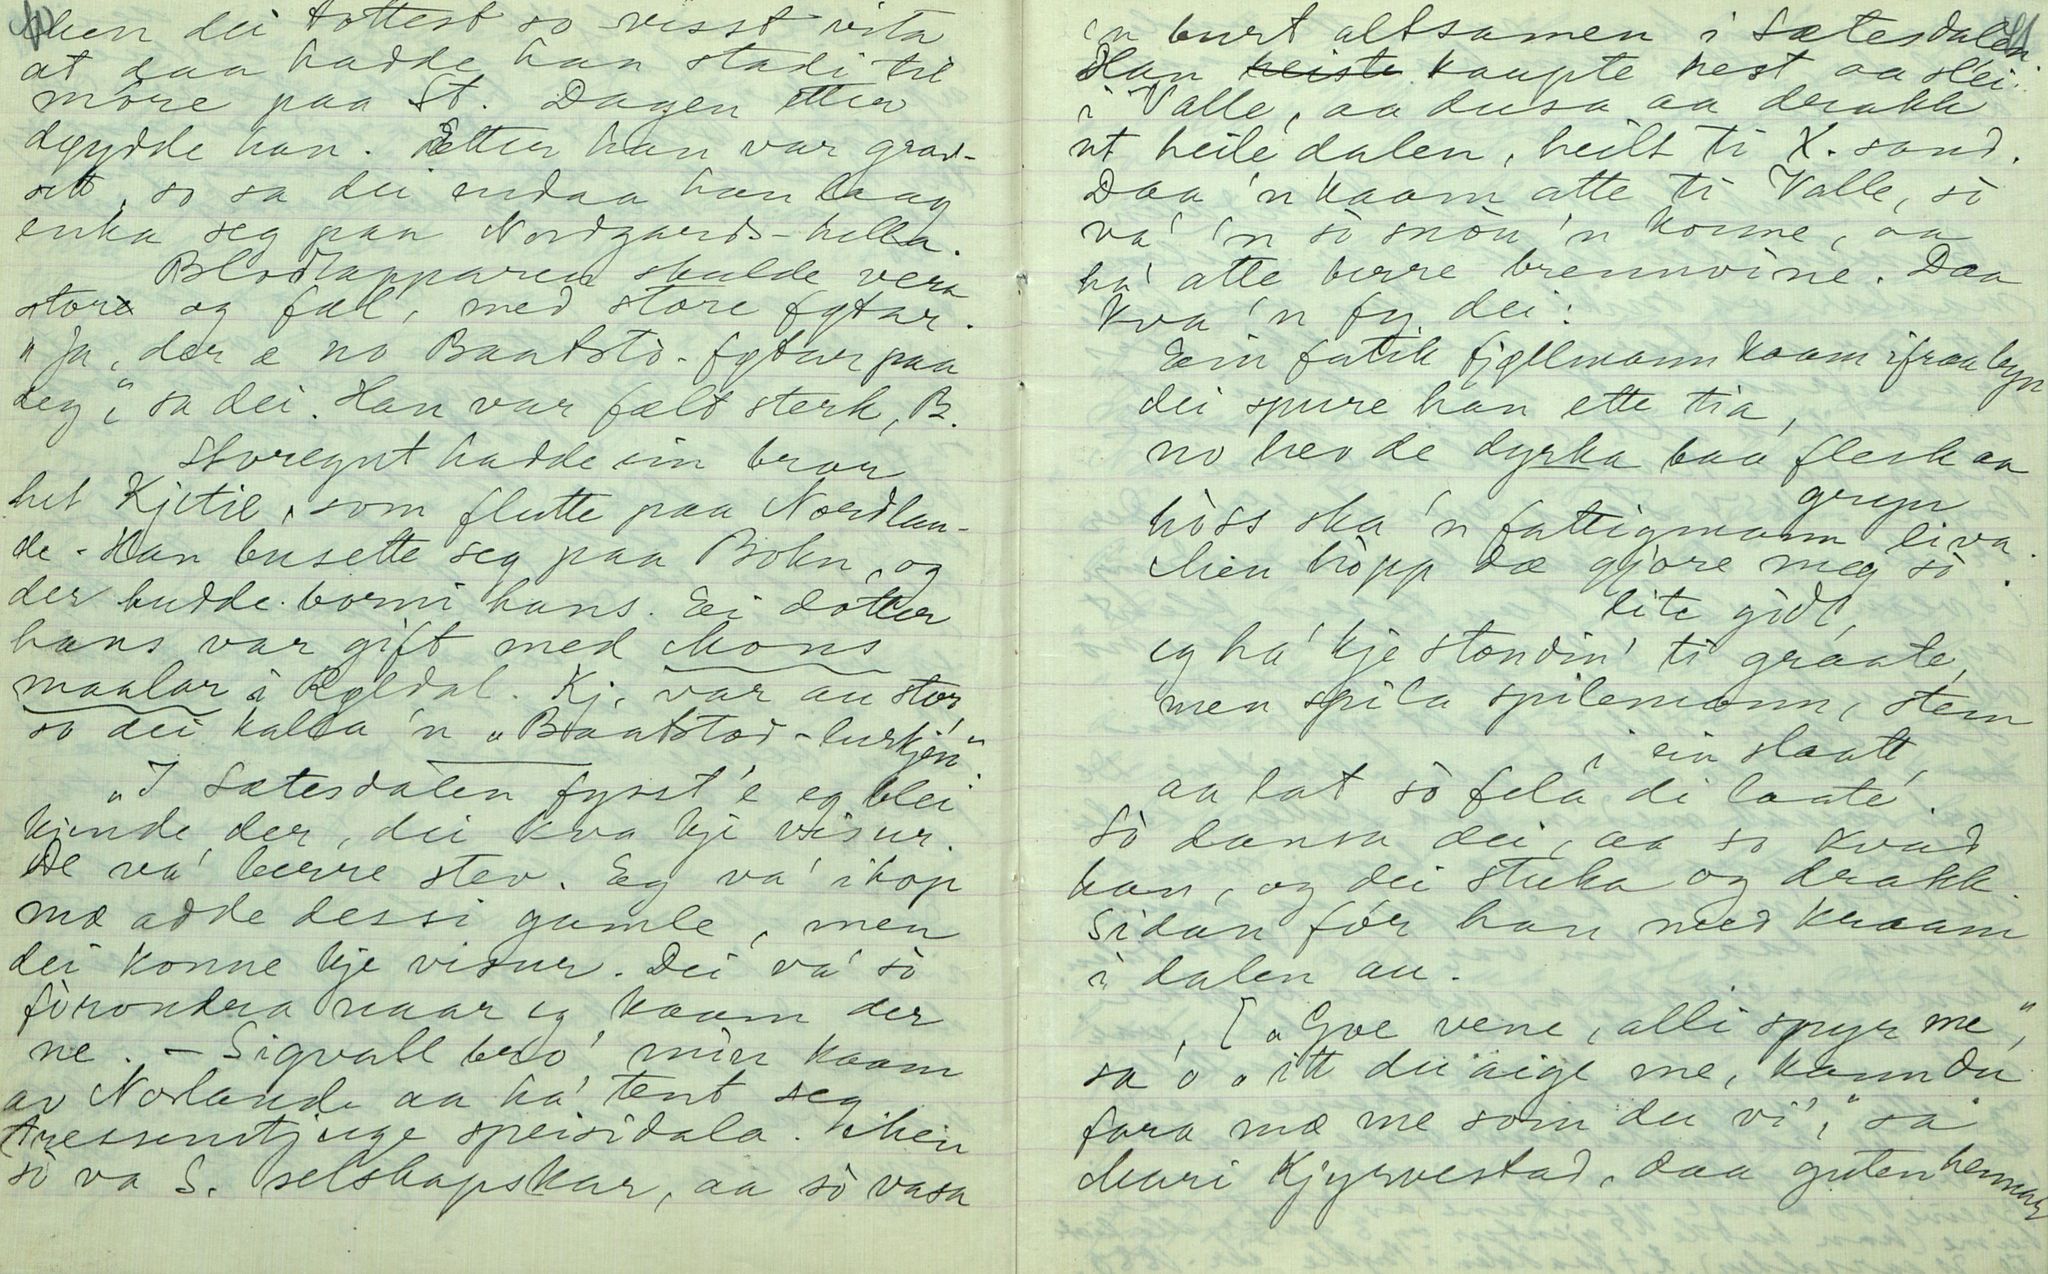 Men dei tottest so visst vita
at daa hadde han stadi til
möre paa St. Dagen etter
döydde han. Etter han var grav-
sett, so sa dei endaa han laag
enka seg paa Nordgards-hella.
Blodtapparen skulde vera
stor og fæl, med store fötar.
"Ja, der æ no Baatstö-fötar paa
deg", sa dei. Han var fælt sterk, B.
Storegut hadde ein bror
het Kjetil, som flutte paa Nordlan-
de. Han busette seg paa Bokn, og
der budde borni hans. Ei dotter
hans var gift med Mons
maalar i Röldal. Kj. var au stor
so dei kalla 'n "Baatstod-lurkjen"
"I Sætesdalen fysst 'e eg blei
kjende der, dei kva kje visur.
De va' berre stev. Eg va' ihop
mæ adde dessi gamle, men
dei konne kje visur. Dei va' sò
fòrondra naar eg kaam der
ne. – Sigvall bro' min kaam
av Norlande aa ha' tent seg
tressenstjuge speisidala. Men
sò va S. selskapskar, aa sò vasa
'n burt altsamen i Sætesdalen.
Han kaupte hest aa slei.
i Valle, aa dusa aa drakk
ut heile dalen, heilt ti K. sand.
Daa 'n kaam atte ti Valle, sò
va' 'n sò snöu 'n konne, aa
ha' atte berre brennvine. Daa
kva 'n fy dei:
Ein fatik fjellmann kaam ifraa byn
dei spure han ette tia,
no hev de dyrka baa flesk aa
gryn
hòss ska 'n fattigmann liva.
Men hòpp dæ gjöre meg sò
lite gidt,
eg ha' kje stondin' ti graate,
men spila spilemann, stem
i ein slaatt,
aa lat sò fela di laate.
Sò dansa dei, aa so kvad
han, og dei stuka og drakk.
Sidan fór han med kraam
i dalen au.
["Goe vene, alli spyr me",
sa' o "itt du aige me, kann du
fara mæ me som du vi'," sa
Mari Kjyrvestad, daa guten hennar